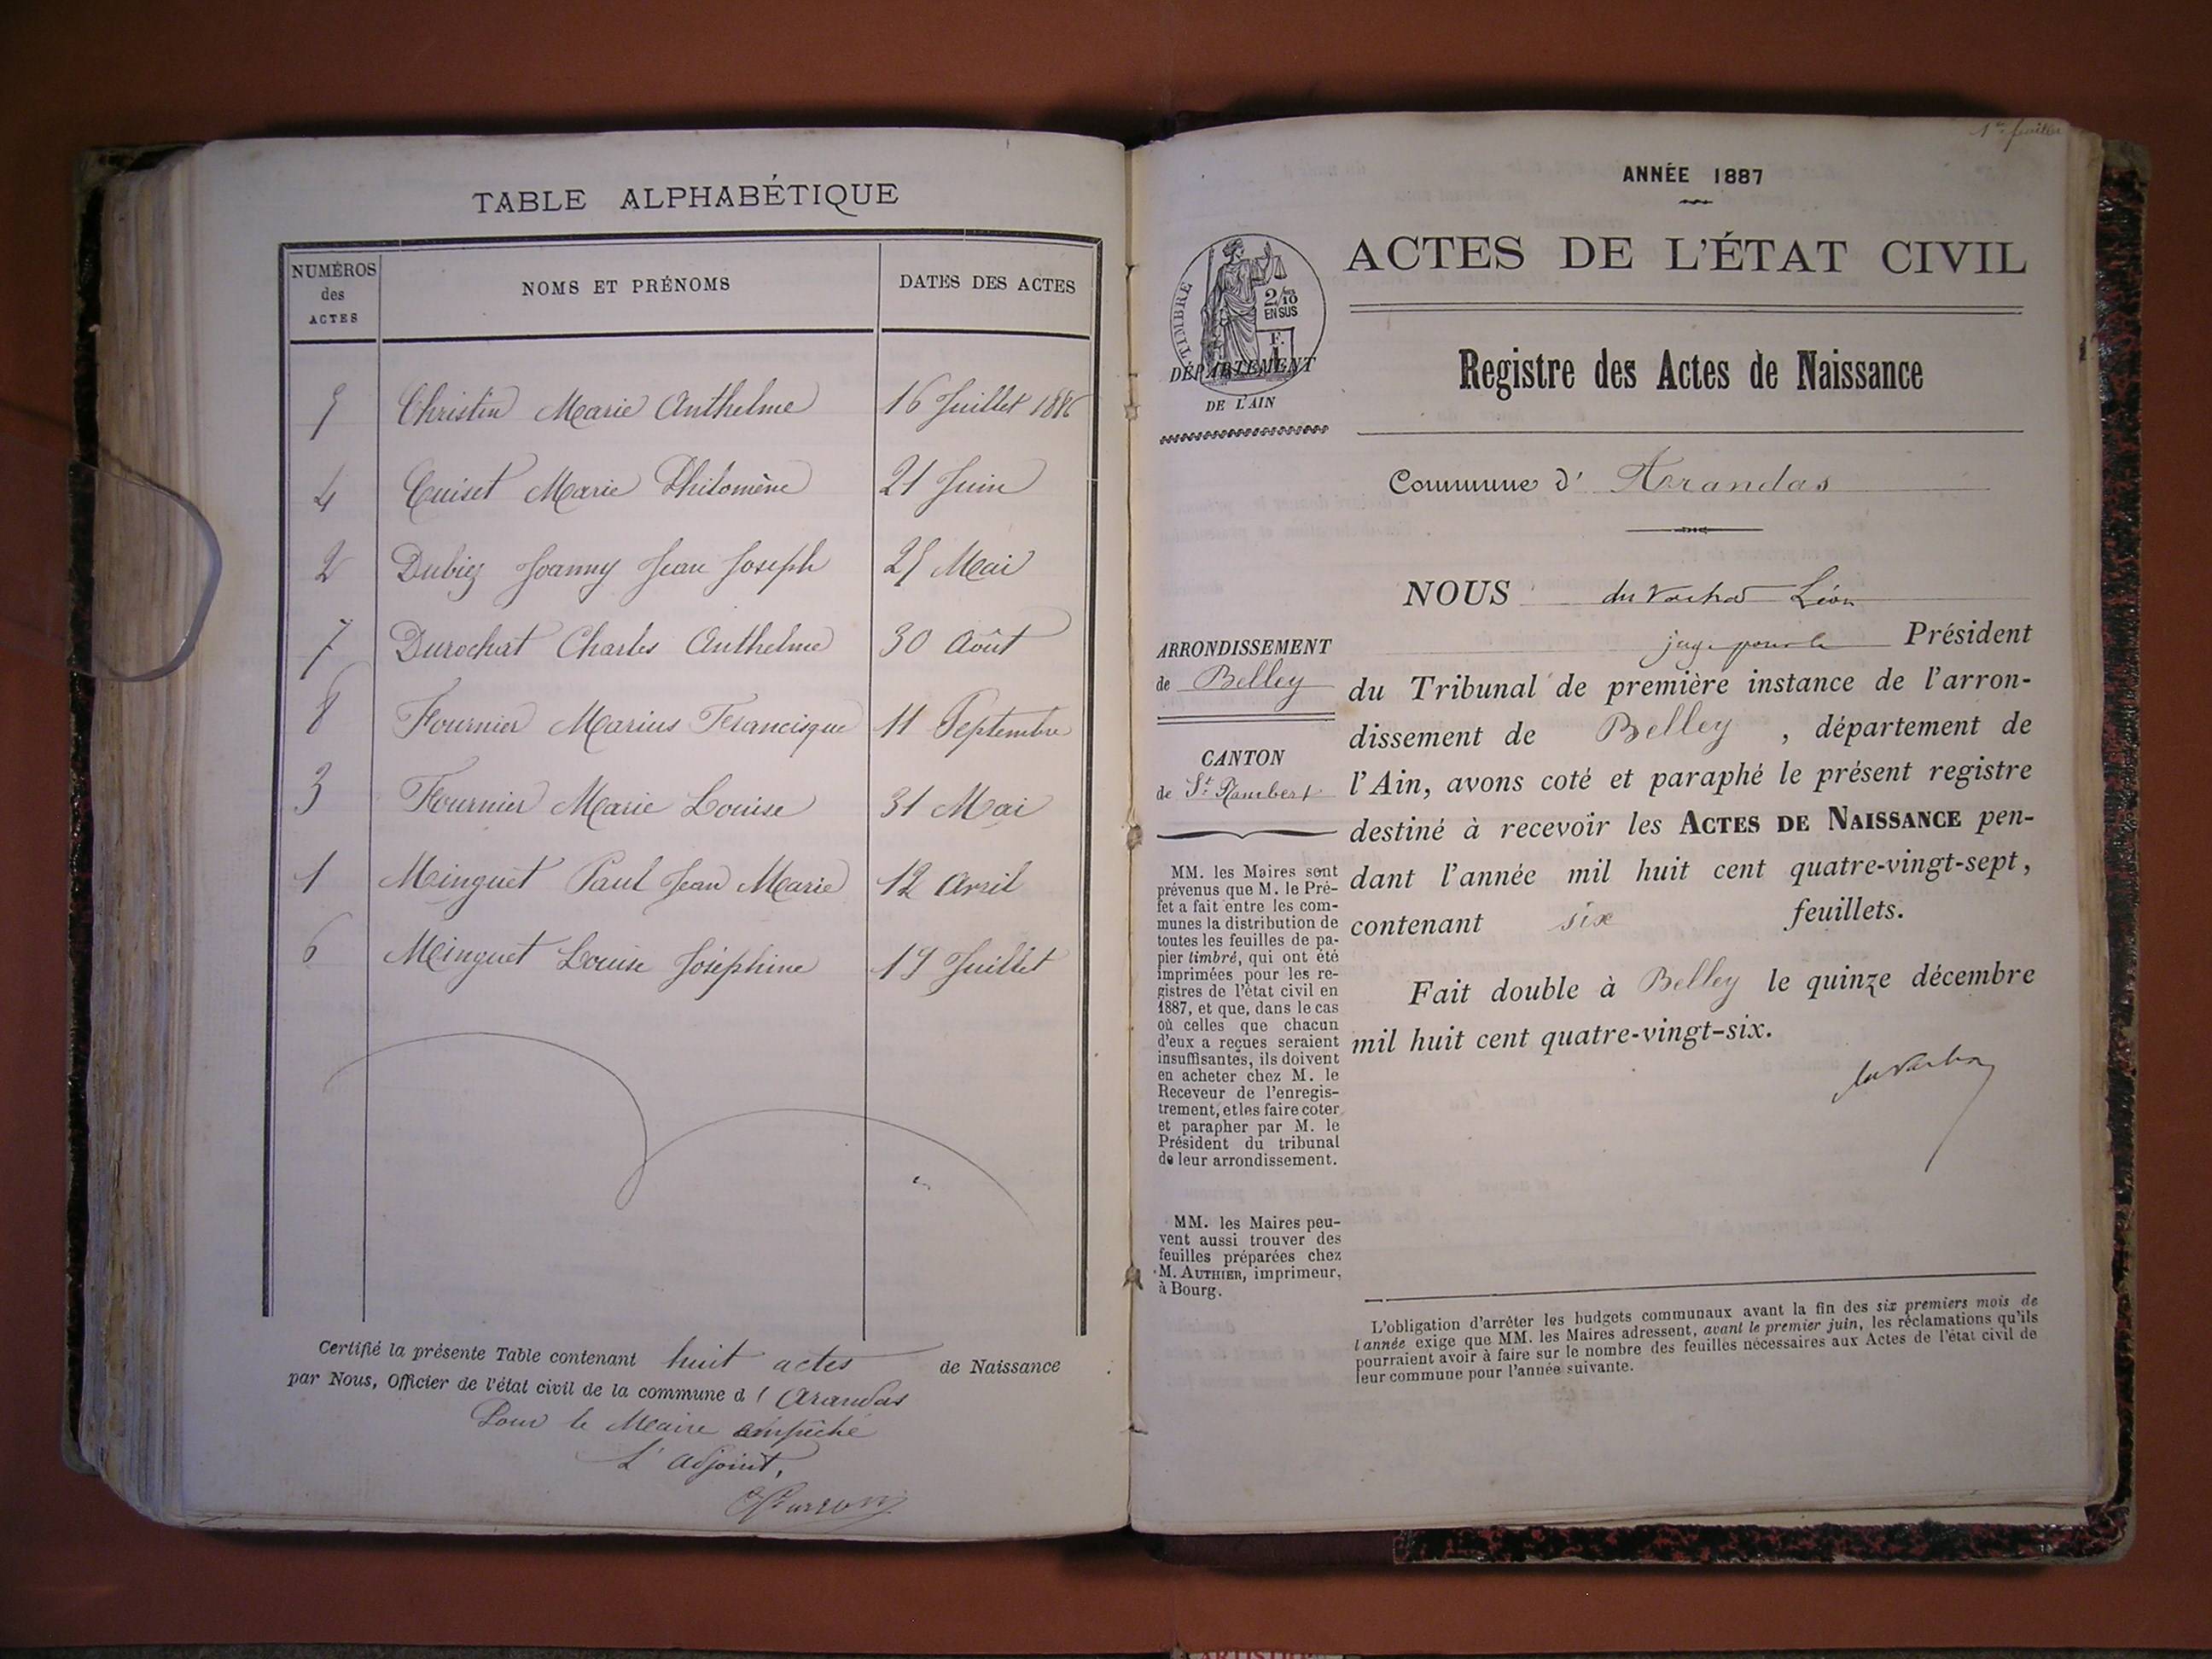 TABLE ALPHABÉTIQUE
NUMÉROS des ACTES
NOMS ET PRÉNOMS
DATES DES ACTES
5 Christin Marie Anthelme 16 Juillet 1886
4 Cuiset Marie Philomène 21 Juin
2 Dubiez Joanny Jean Joseph 25 Mai
7 Durochat Charles Anthelme 30 Août
8 Fournier Marius Francisque 11 Septembre
3 Fournier Marie Louise 31 Mai
1 Minguet Paul Jean Marie 12 Avril
6 Minguet Louise Joséphine 19 Juillet
Certifié la présente Table contenant huit actes de Naissance
par Nous, Officier de l'état civil de la commune d' Arandas
Pour le Maire empêché
L'adjoint,
1er feuillet
ANNÉE 1887
ACTES DE L'ÉTAT CIVIL
TIMBRE
2/10
EN SUS
F.
1
DÉPARTEMENT
DE L'AIN
Registre des Actes de Naissance
Commune d' Arandas
NOUS Léon
juge pour le Président
ARRONDISSEMENT
de Belley
du Tribunal de première instance de l'arron-
dissement de Belley, département de
CANTON
de St Rambert
l'Ain, avons coté et paraphé le présent registre
destiné à recevoir les ACTES DE NAISSANCE pen-
dant l'année mil huit cent quatre-vingt-sept,
contenant six feuillets.
Fait double à Belley le quinze décembre
mil huit cent quatre-vingt-six.
MM. les Maires sont
prévenus que M. le Pré-
fet a fait entre les com-
munes la distribution de
toutes les feuilles de pa-
pier timbré, qui ont été
imprimées pour les re-
gistres de l'état civil en
1887, et que, dans le cas
où celles que chacun
d'eux a reçues seraient
insuffisantes, ils doivent
en acheter chez M. le
Receveur de l'enregis-
trement, et les faire coter
et parapher par M. le
Président du tribunal
de leur arrondissement.
MM. les Maires peu-
vent aussi trouver des
feuilles préparées chez
M. AUTHIER, imprimeur,
à Bourg.
L'obligation d'arrêter les budgets communaux avant la fin des six premiers mois de
l'année exige que MM. les Maires adressent, avant le premier juin, les réclamations qu'ils
pourraient avoir à faire sur le nombre des feuilles nécessaires aux Actes de l'état civil de
leur commune pour l'année suivante.